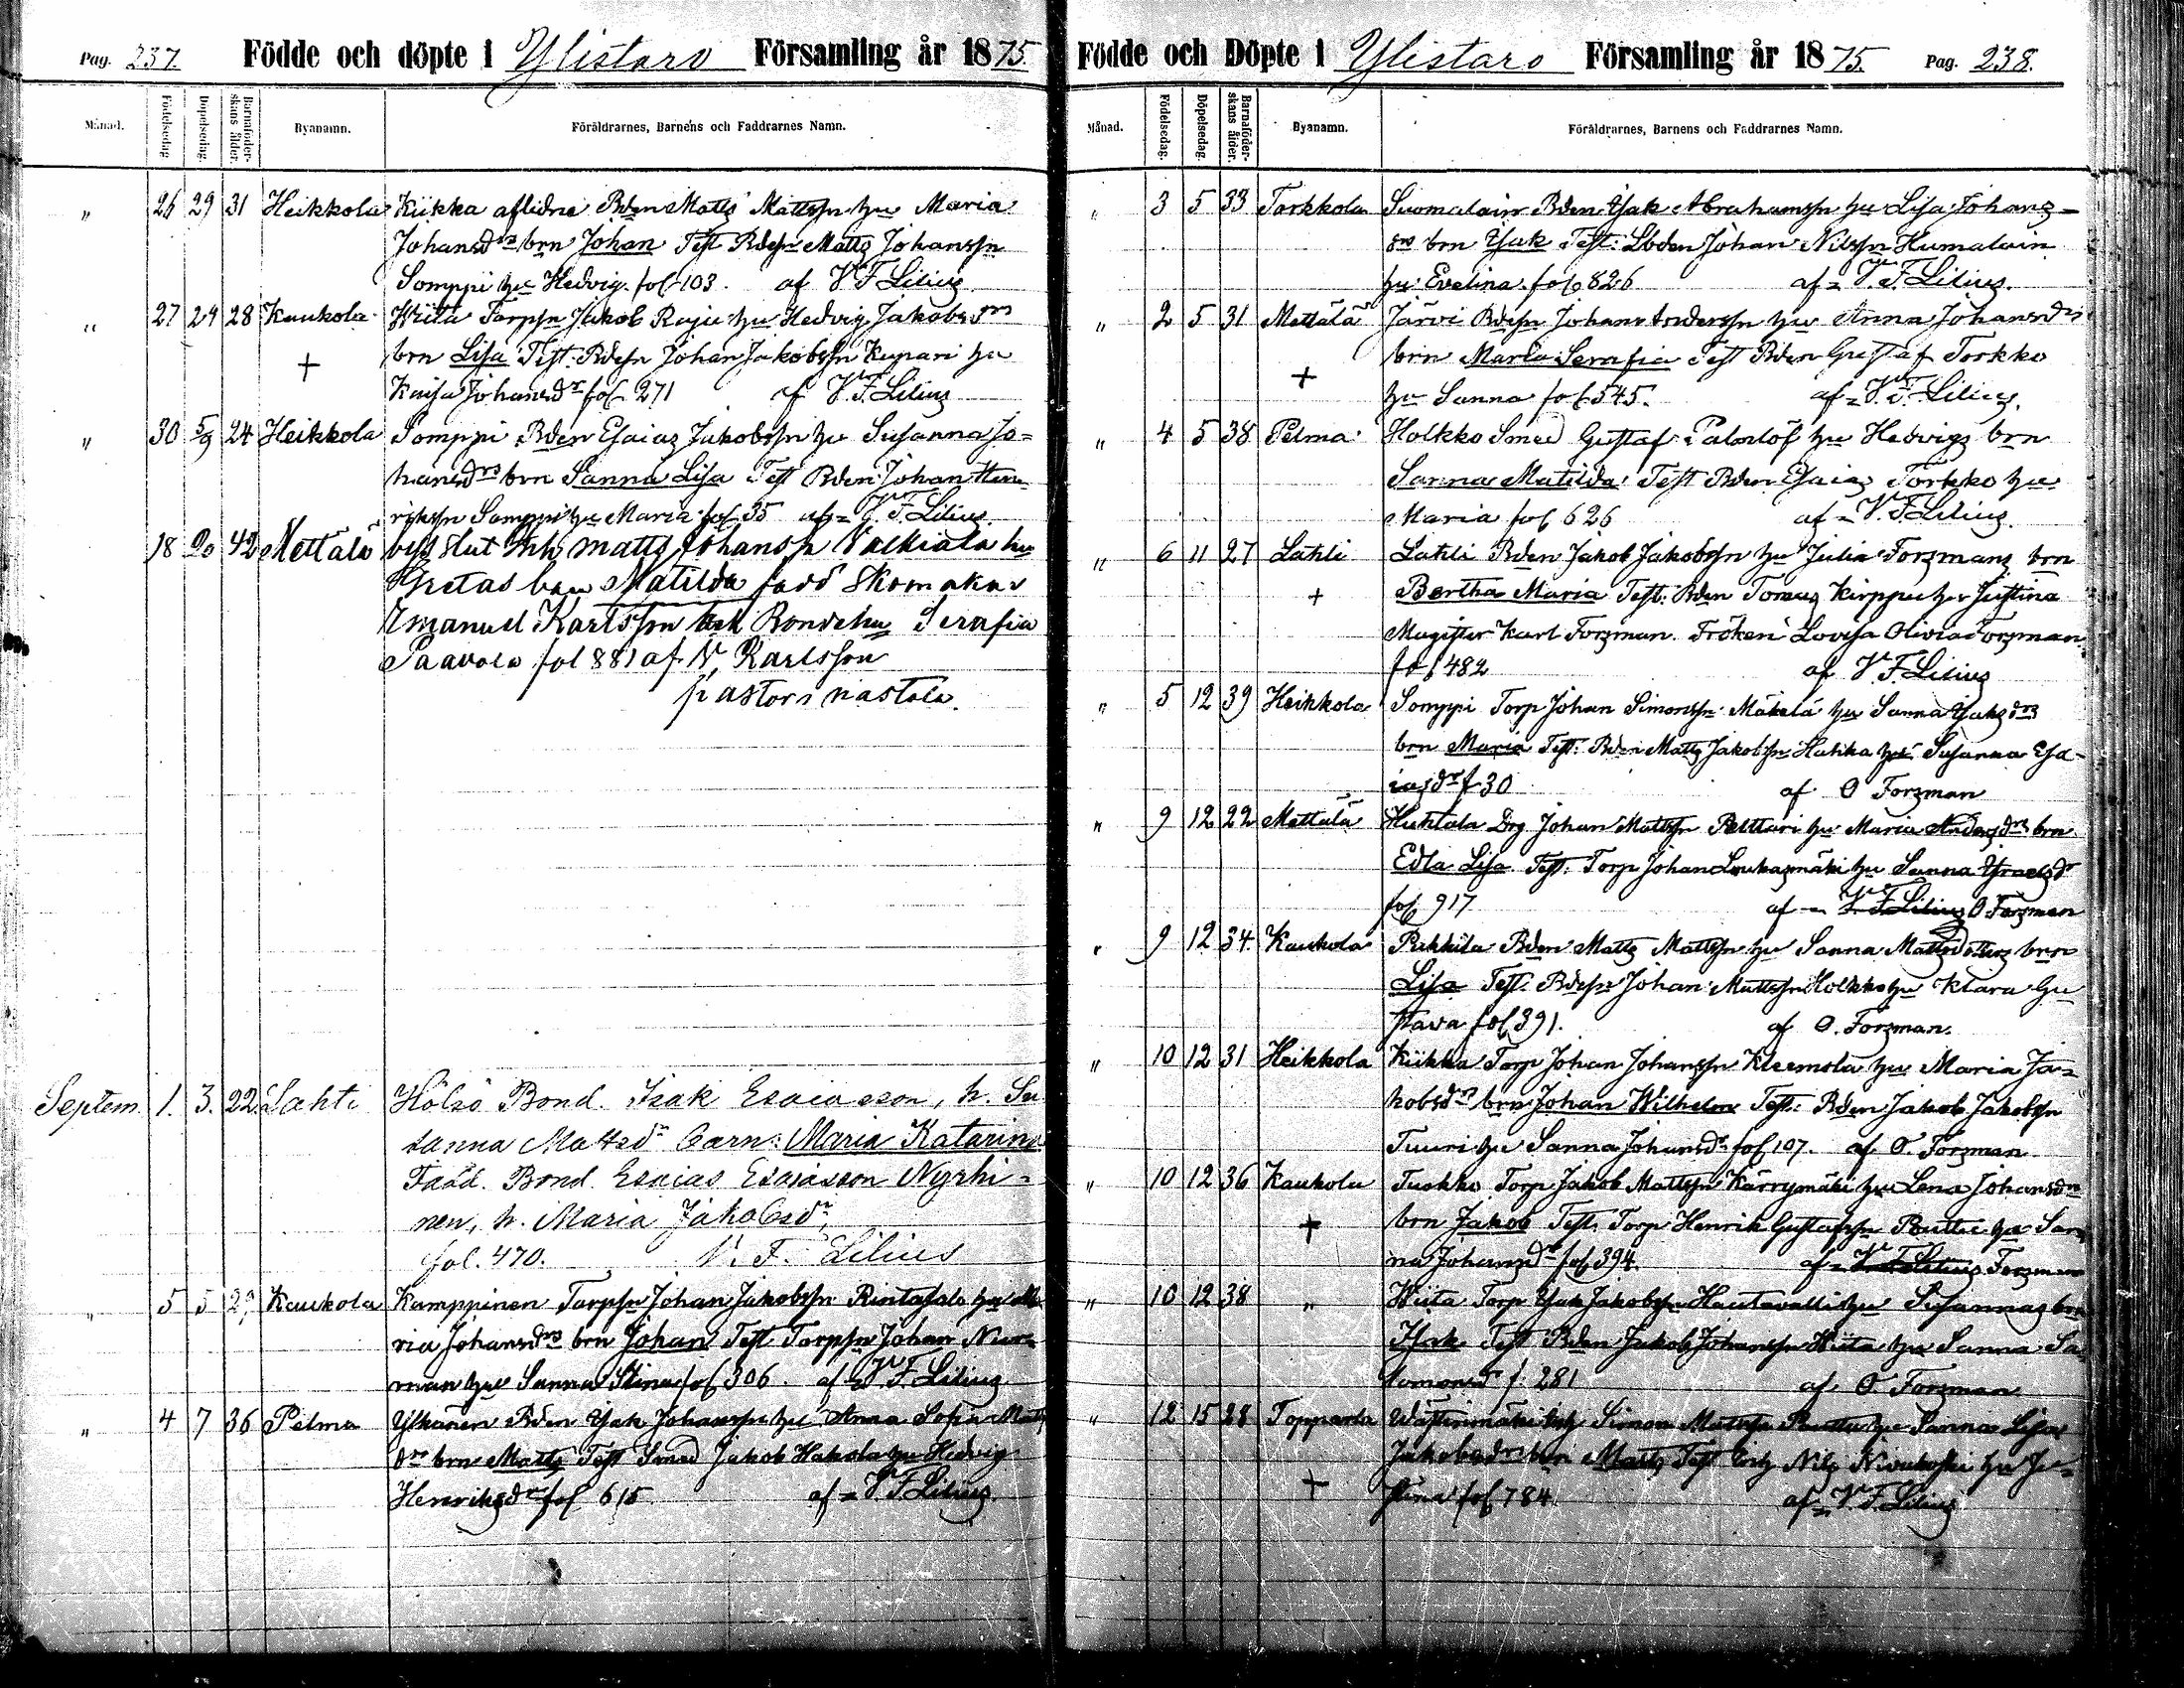 Pag. 237. Födde och döpte i Ylistaro Församling år 1875.
Månad. Födelsedag Döpelsedag. Barnaföderskans ålder. Byanamn. Föräldrarnes, Barnens och Faddrarnes Namn.
" 26 29 31 Heikkola Kiikka aflidne Bden Matts Mattssn hu Maria
Johansdrs brn Johan Test Bdesn Matts Johanssn
Somppi hu Hedvig. fol 103. af V. F. Lilius
" 27 29 28 Kaukola Wiita Torpsn Jakob Raju hu Hedvig Jakobsdrs
+ brn Lisa Test. Bdesn Johan Jakobssn Kupari hu
Kaisa Johansdr fol. 271 af V. F. Lilius
" 30 5/9 24 Heikkola Somppi Bden Esaias Jakobssn hu Susanna Jo=
hansdrs brn Sanna Lisa Test Bden Johan Hen
rikssn Somppi hu Maria fol 35 af V. F. Lilius.
18 20 42 Mettälä Inh Matts Johanssn hu
Gretas barn Matilda fadd Skomakar
Emanuel Karlsson Serafia
Paavola fol 881 af N. Karlsson
pastor i nastola.
Septem. 1. 3. 22 Lahti Hölsö Bond. Isak Esaiasson, h. Su
sanna Mattsdr barn: Maria Katarina
Fadd. Bond. Esaias Esaiasson Nyrhi=
nen, h. Maria Jakobsdr,
fol. 470. V. F. Lilius
" 5 5 29 Kaukola Kamppinen Torpsn Johan Jakobssn hu Ma
ria Johansdrs brn Johan Test Torpsn Johan
man hu Sanna Stina fol 306. af V. F. Lilius
" 4 7 36 Pelma Ylkänen Bden Isak Johanssn hu Anna Sofia Matts
drs brn Matts Test Smed Jakob Hakola hu Hedvig
Henriksdr fol 615 af V. F. Lilius.
Födde och Döpte i Ylistaro Församling år 1875. Pag. 238.
Månad. Födelsedag. Döpelsedag. Barnaföderskans ålder. Byanamn. Föräldrarnes, Barnens och Faddrarnes Namn.
" 3 5 33 Torkkola Suomalain Bden Isak Abrahamssn hu Lisa Johans-
drs brn Isak Test: Lbden Johan Nilssn Humalain
hu Evelina. fol 826 af V. F. Lilius.
" 2 5 31 Mettälä Järvi Bdesn Johan Anderssn hu Anna Johansdrs
+ brn Maria Serafia Test Bden Gustaf Torkko
hu Sanna fol 545. af V. F. Lilius.
" 4 5 38 Pelma Holkko Smed Gustaf Palmlöf hu Hedvigs brn
Sanna Matilda Test Bden Esaias Torkko hu
Maria fol 626 af V. F. Lilius.
" 6 11 27 Lahti Lahti Bden Jakob Jakobssn hu Julia Forsmans brn
+ Bertha Maria Test: Bden Tomas Kirppu hu Justina
Magister Karl Forsman. Fröken Lovisa Olivia Forsman
fol 482 af V. F. Lilius
" 5 12 39 Heikkola Somppi Torp Johan Simonssn Mäkelä hu Sanna Isaksdrs
brn Maria Test: Bden Matts Jakobssn Hatikka hu Susanna Esa-
iasdr f 30 af O Forsman
" 9 12 22 Mettälä Huhtala Drg Johan Mattssn Pelttari hu Maria Andersdrs brn
Edla Lisa Test. Torp Johan Loukasmäki hu Sanna Israelsdr
fol 917 af V. F. Lilius O Forsman
" 9 12 34. Kaukola Pukkila Bden Matts Mattssn hu Sanna Mattsdotters brn
Lisa Test. Bdesn Johan Mattssn Holkko hu Klara Gu
stava fol 391. af O. Forsman.
" 10 12 31 Heikkola Kiikka Torp Johan Johanssn Kleemola hu Maria Ja=
kobsdrs brn Johan Wilhelm Test: Bden Jakob Jakobssn
Tuuri hu Sanna Johansdr fol 107. af O. Forsman
" 10 12 36 Kaukola Tuokko Torp Jakob Mattssn Kärrymäki hu Lena Johansdrs
+ brn Jakob Test. Torp Henrik Gustafssn hu San
na Johansdr fol 394. af V. F. Lilius Forsman
" 10 12 38 " Wiita Torp Isak Jakobssn Hautavalli hu Susannas brn
Isak Test Bden Jakob Johanssn Wiita hu Sanna Sa
lomonsdr f. 281 af O Forsman
" 12 15 28 Topparla Simon Mattssn hu Sanna Lisa
+ Jakobsdrs brn Matts Test Nils Niinikoski hu Ju=
stina fol 784 af V. F. Lilius